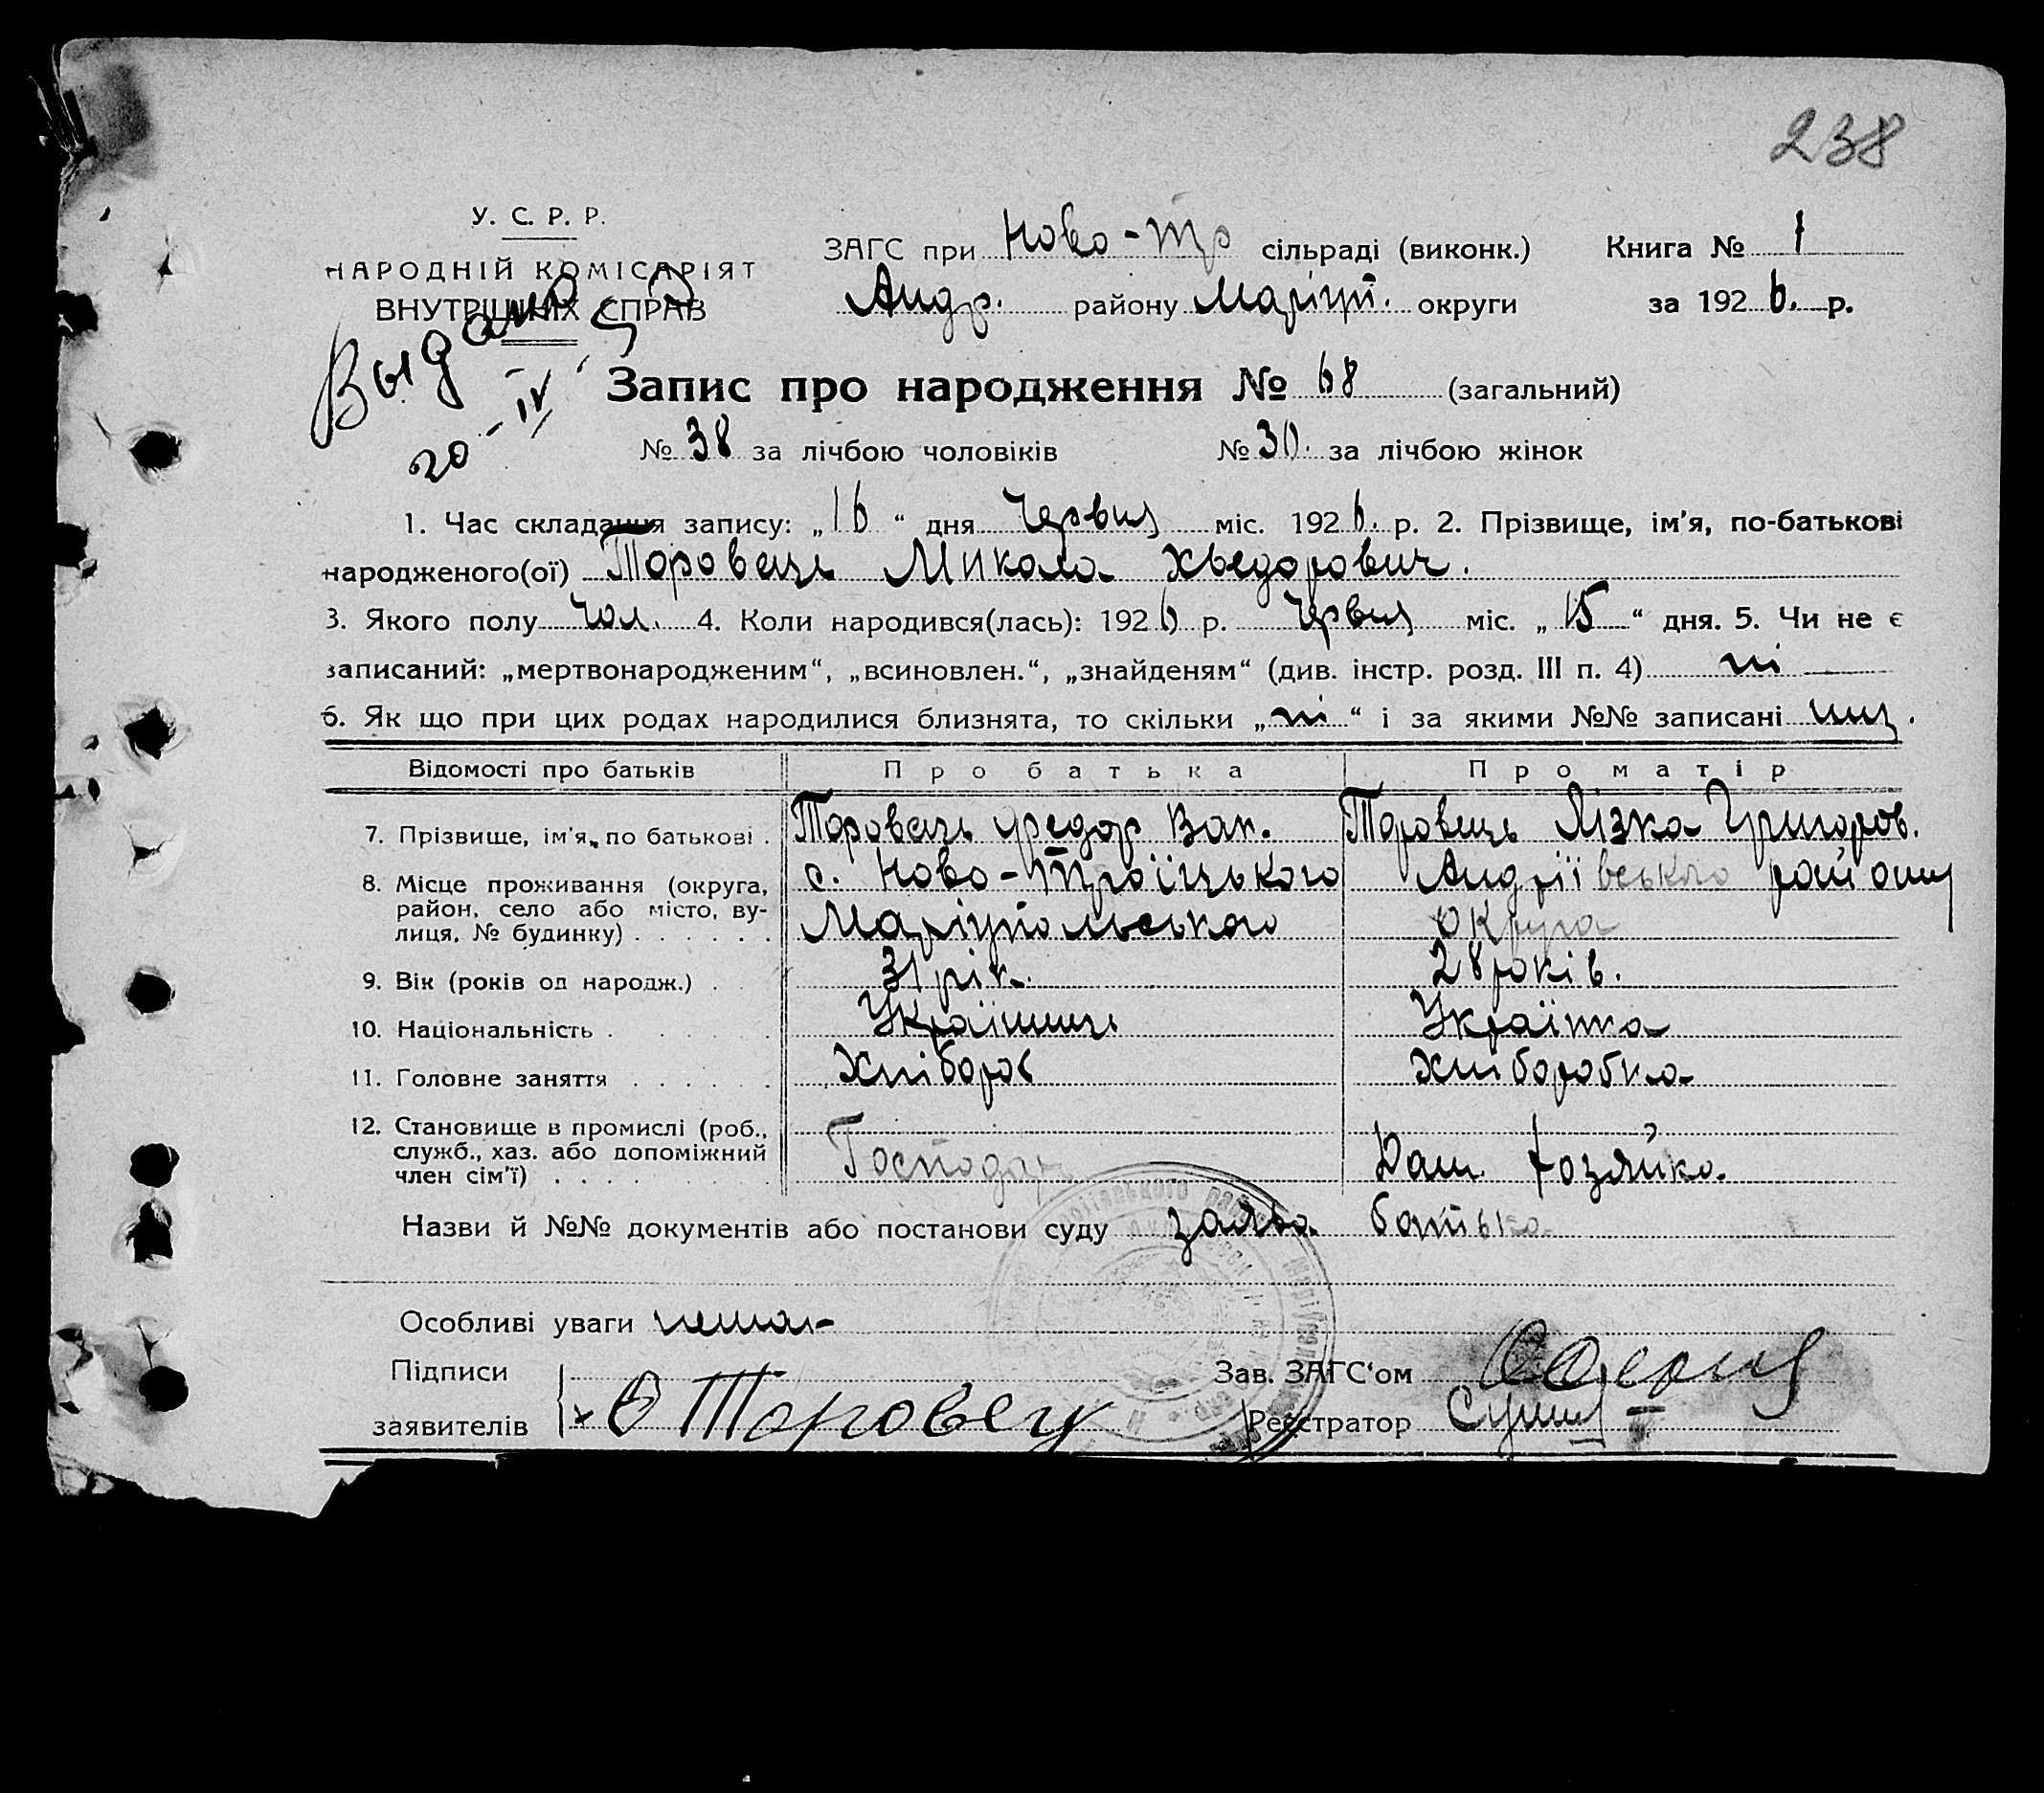 238
У. С. Р. Р.
НАРОДНІЙ КОМІСАРІЯТ
ВНУТРІШНІХ СПРАВ
ЗАГС при Ново-Тр сільраді (виконк.) Книга № 1
Андр. району Маріуп. округи за 1926. р.
Выдано
20-IV
Запис про народження № 68 (загальний)
№ 38 за лічбою чоловіків № 30. за лічбою жінок
1. Час складання запису: „16“ дня Червня міс. 1926. р. 2. Прізвище, ім'я, по-батькові
народженого(ої) Торовець Микола Хведорович.
3. Якого полу чол. 4. Коли народився(лась): 1926 р. Червня міс. „15“ дня. 5. Чи не є
записаний: „мертвонародженим“, „всиновлен.“, „знайденям“ (див. інстр. розд. III п. 4) ні
6. Як що при цих родах народилися близнята, то скільки „ні“ і за якими №№ записані
Відомості про батьків Про батька Про матір
7. Прізвище, ім'я, по батькові . Торовець Федор Вак. Торовець Лізка Григоров.
8. Місце проживання (округа, район, село або місто, ву-
лиця, № будинку) . . . . . . с. Ново-Троїцького Андріївського району
Маріупольського округа
9. Вік (років од народж.) . . 31 рік. 28 років.
10. Національність . . . . . Українець Українка
11. Головне заняття . . . . . Хлібороб Хліборобка
12. Становище в промислі (роб.,
служб., хаз. або допоміжний
член сім'ї) . . . . . . . . Господар Дом. хозяйка.
Назви й №№ документів або постанови суду заява батька
Особливі уваги немає
Підписи
заявителів Ф Торовец
Зав. ЗАГС'ом
Реєстратор